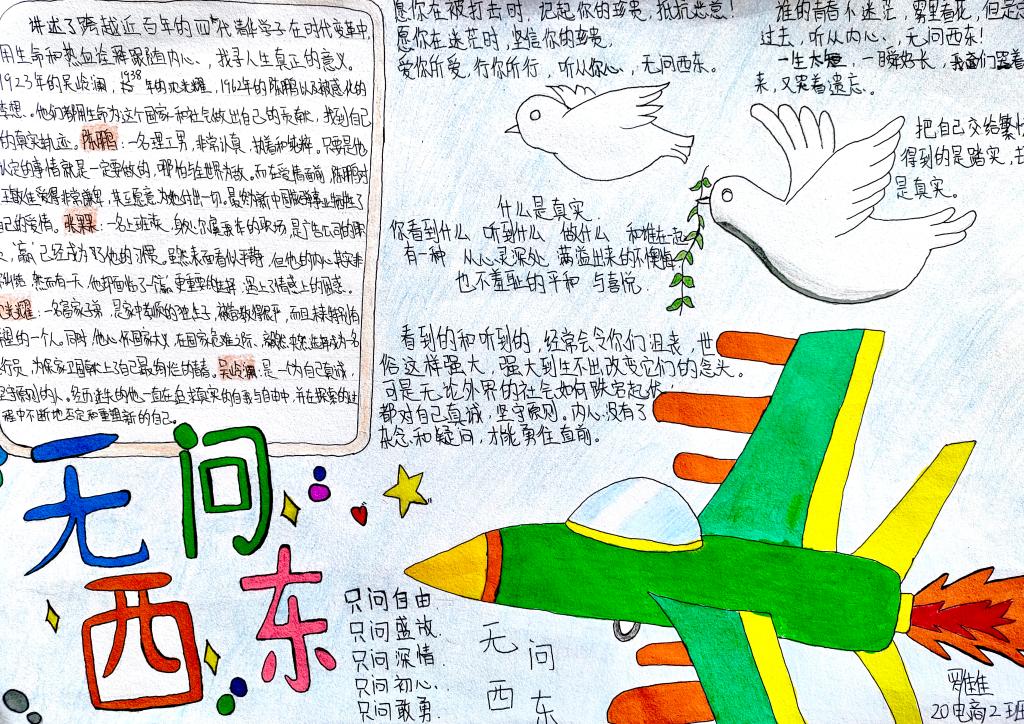 讲述了跨越近百年的四代清华学子在时代变革中,
用生命和热血诠释跟随内心、找寻人生真正的意义。
1923年的吴岭澜,1938年的沈光耀,1962年的陈鹏以及被感化的
李想。他们都用生命为这个国家和社会做出自己的贡献,找到自己
的真实轨迹。陈鹏:一名理工男,非常认真、执着和纯粹。只要是他
认定的事情就是一定要做的,哪怕与世界为敌。而在爱情面前,陈鹏对
王敏佳爱得非常谦卑,甚至愿意为她付出一切。最终为新中国的核事业牺牲了
自己的爱情。张果果:一名上班族,身处尔虞我诈的职场,是广告公司的
己经成为了他的习惯。虽然表面看似平静,但他的内心其实
然而有一天,他却面临了一个更重要的选择,遇上了情感上的困惑。
沈光耀:一名富家子弟,是家中的独生子,被教育得很严,而且
的一个人。同时,他心怀国家大义,在国家危难之际,毅然决然选择成为一名
行员,为保家卫国献上了自己最绚烂的青春。吴岭澜:是一个为自己真诚,
坚守原则的人。经历迷惘的他一直在追求真实的自我与自由中,并在探索的过
程中不断地否定和重塑新的自己。
愿你在被打击时,记起你的珍贵,抵抗恶意!
愿你在迷茫时,坚信你的珍贵,
爱你所爱,行你所行,听从你心,无问西东。
谁的青春不迷茫,雾里看花,但是
过去,听从内心、,无问西东!
一生太短,一瞬好长,我们哭着
来,又笑着遗忘。
把自己交给繁忙
得到的是踏实,
是真实。
什么是真实
你看到什么 听到什么 做什么 和谁在一起
有一种 从心灵深处 满溢出来的不懊悔
也不羞耻的平和 与喜悦.
看到的和听到的,经常会令你们沮丧,世
俗这样强大,强大到生不出改变它们的念头。
可是无论外界的社会如何跌宕起伏,
都对自己真诚,坚守原则。内心没有了
杂念和疑问,才能勇往直前。
无问
西东
只问自由.
只问盛放.
只问深情.
只问初心.
只问敢勇.
无问
西东
罗佳
20电商2班